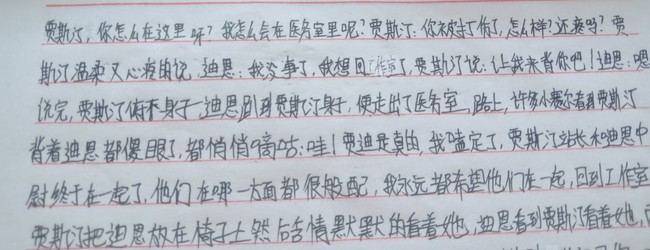 贾斯汀，你怎么在这里呀？我怎么会在医务室里呢？贾斯汀：你被打伤了，怎么样？还疼吗？贾
斯汀温柔又心疼的说，迪思：我没事了，我想回工作室了，贾斯汀说：让我来背你吧！迪思：嗯
说完，贾斯汀俯下身子，迪思趴到贾斯汀身子，便走出了医务室，路上，许多小赛尔看到贾斯汀
背着迪思都傻眼了，都悄悄嘀咕：哇！贾迪是真的，我嗑定了，贾斯汀站长和迪思中
尉终于在一起了，他们在哪一方面都很般配，我永远都希望他们在一起，回到工作室
贾斯汀把迪思放在椅子上然后含情默默的看着她，迪思看到贾斯汀看着她，